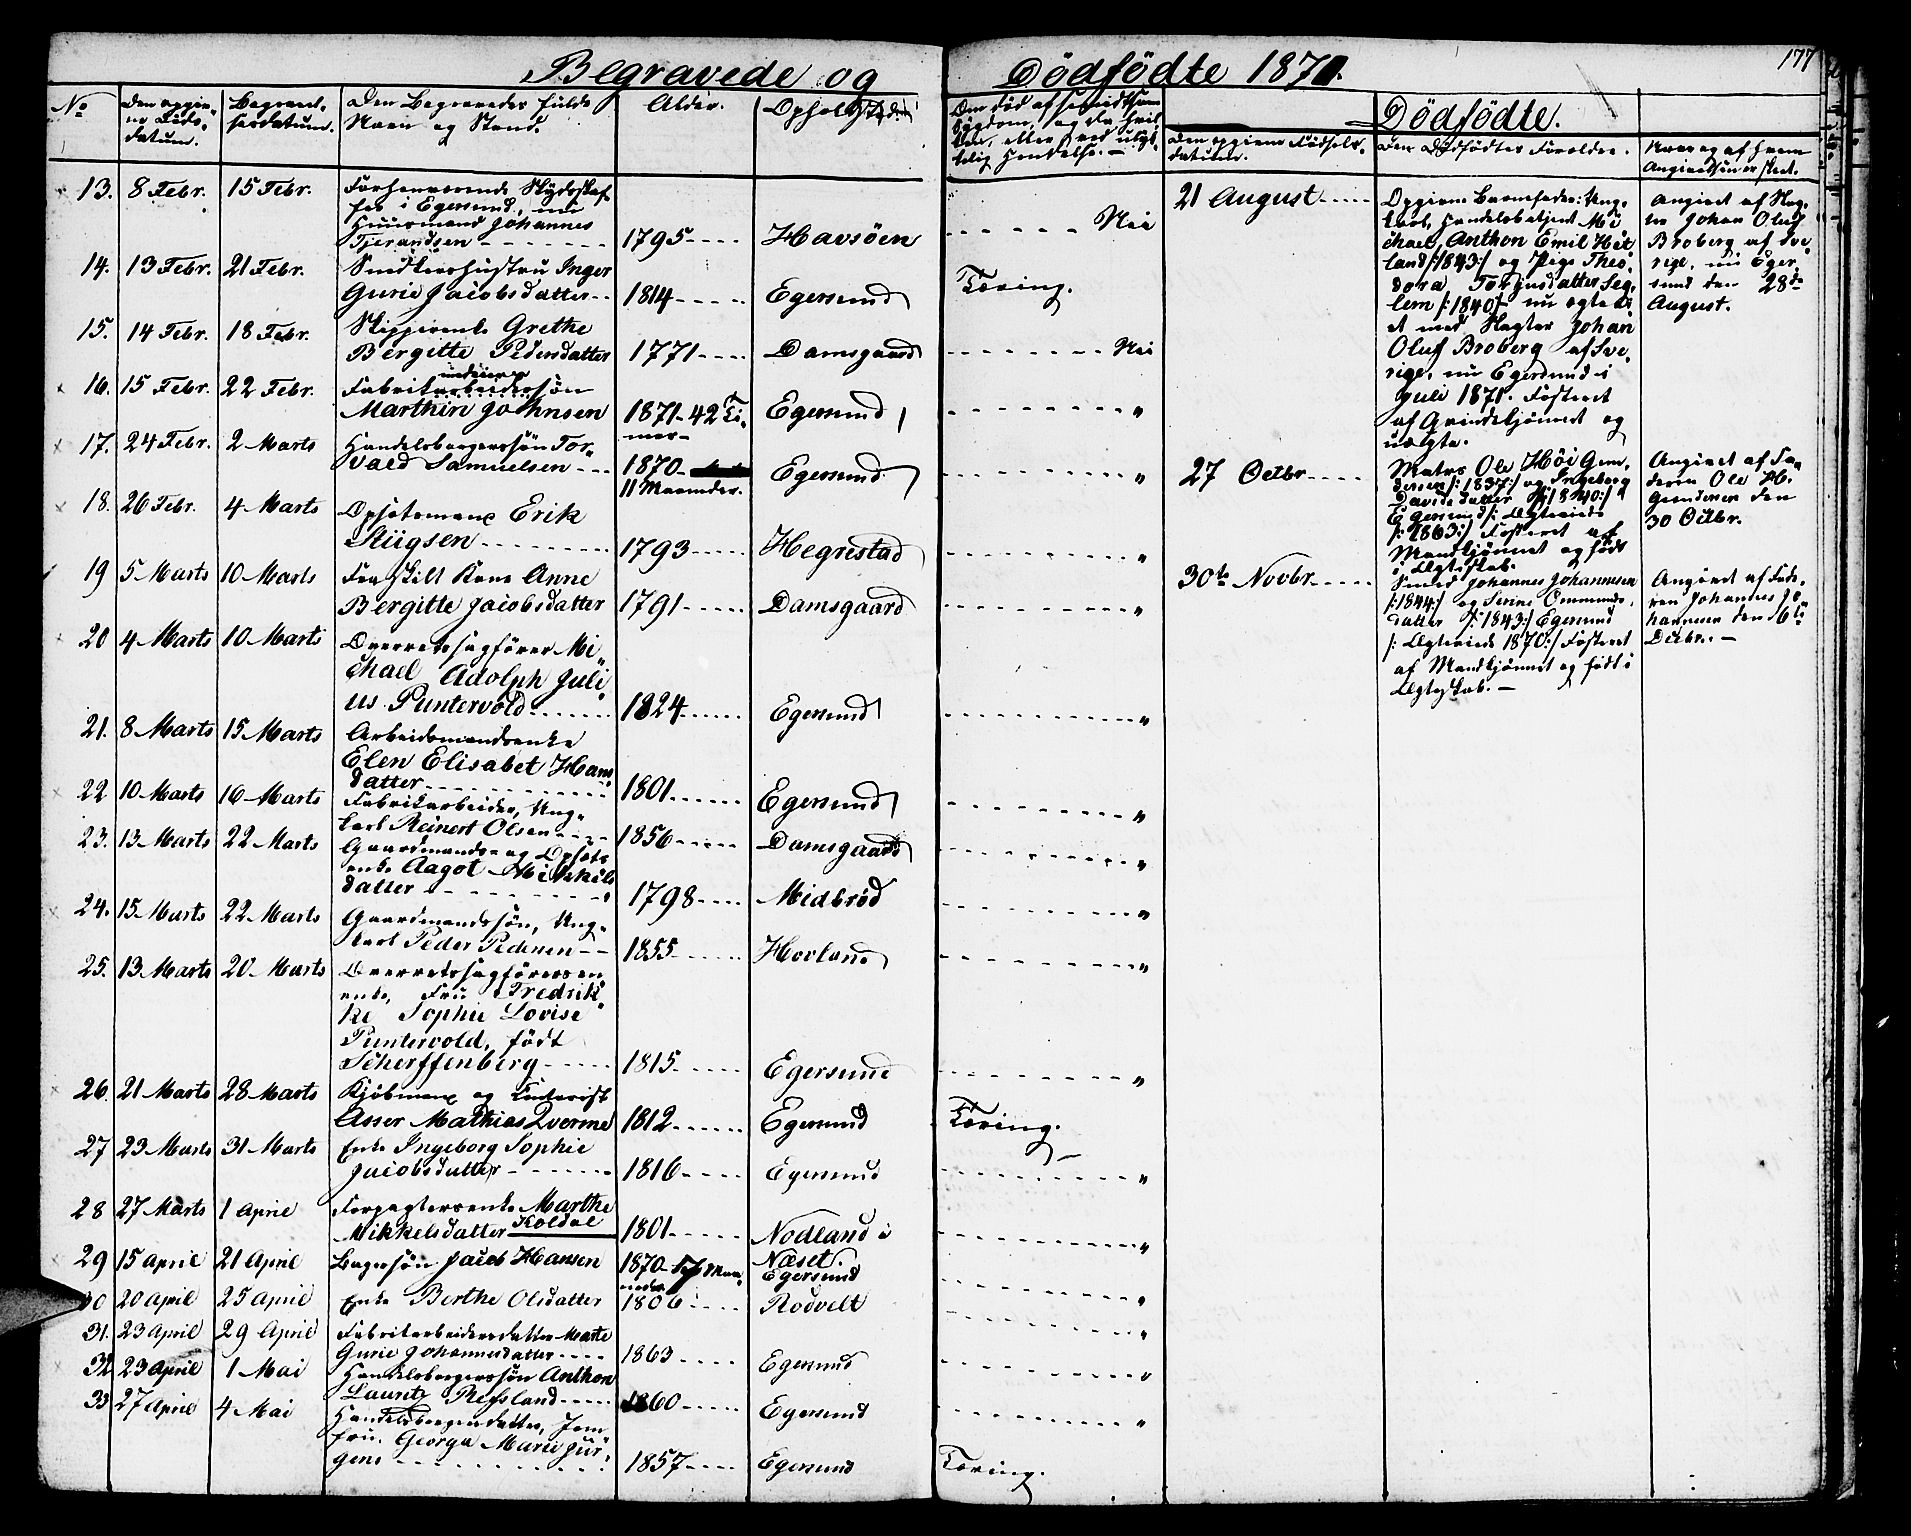 Begravede og Dödfödte 1871.
177
No
Den opgivne Dödsdatum.
Begravelsesdatum.
Den Begravedes fulde Navn og Stand.
Alder.
Opholdssted
Dödfödte.
Den opgivne Födselsdatum.
Den Dödfödtes Forældre.
13. 8 Febr. 15 Febr.
i Egersund, nu
Huusmand Johannes
Tjerandsen 1795 Havsöen Nei
14. 13 Febr. 21 Febr. Snedkershustru Inger
Gurie Jacobsdatter 1814 Egersund Tæring.
15. 14 Febr. 18 Febr. Grethe
Bergitte Pedersdatter 1771 Damsgaard Nei
16. 15 Febr. 22 Febr. Fabrikarbeidersön
Marthin Johnsen 1871 42 Timer Egersund "
17. 24 Febr. 2 Marts Handelsborgerssön Tor-
vald Samuelsen 1870 11 Maaneder. Egersund "
18. 26 Febr. 4 Marts Erik
Stiigsen 1793 Hegrestad "
19 5 Marts 10 Marts Fraskilt Kone Anne
Bergitte Jacobsdatter 1791 Damsgaard "
20 4 Marts 10 Marts Overretssagförer Mi-
chael Adolph Juli-
us Puntervold 1824 Egersund "
21. 8 Marts 15 Marts Arbeidsmandsenke
Elen Elisabet Hans-
datter 1801 Egersund "
22 10 Marts 16 Marts Fabrikarbeider, Ung-
karl Reinert Olsen 1856 Damsgaard "
23. 13 Marts 22 Marts Gaardmands- og
enke Aagot Mikkels-
datter 1798 Midbröd "
24. 15 Marts 22 Marts Gaardmandssön, Ung-
karl Peder Pedersen 1855 Hovland "
25. 13 Marts 20 Marts Overretssagförers
enke, Fru Fredrik-
ke Sophie Lovise
Puntervold, födt
Scherffenberg 1815 Egersund "
26. 21 Marts 28 Marts Kjöbmand og
Asser Mathias Qverme 1812 Egersund Tæring.
27 23 Marts 31 Marts Enke Ingeborg Sophie
Jacobsdatter 1816 Egersund "
28 27 Marts 1 April Forpagtersenke Marthe
Mikkelsdatter Koldal 1801 Nodland i Næset. "
29 15 April 21 April Bagersön Jacob Hansen 1870 Egersund "
30 20 April 25 April Enke Berthe Olsdatter 1806 Rodvelt "
31. 23 April 29 April Fabrikarbeidersdatter Marte
Gurie Johannesdatter 1863 Egersund "
32 23 April 1 Mai Handelsborgerssön Anthon
Lauritz Refsland 1860 Egersund "
33 27 April 4 Mai Handelsborgerdatter, Jom-
fru Georga Marie Jür-
gens 1857 Egersund Tæring.
21 August
Opgivne Barnefader: Ung-
karl, Handelsbetjent Mi-
chael Anthon Emil Het-
land /:1843:/ og Pige Theo-
dora Torgersdatter Seg-
lem /:1840:/ nu ægtevi-
et med Slagter Johan
Oluf Broberg af Sve-
rige, nu Egersund i
Juli 1871. Fosteret
af Qvindekjönnet og
uægte.
Angivet af Slag-
ter Johan Oluf
Broberg af Sve-
rige, nu Eger-
sund den 28de
August.
27 Octbr
Ole Höi Gun-
dersen /:1837:/ og Ingeborg
Davidsdatter /:1840:/
Egersund /: Ægteviede
/:1863:/ Fosteret af
Mandkjönnet og födt
i Ægteskab.
Angivet af Fa-
deren Ole H.
Gundersen den
30 Octbr.
30te Novbr
Smed Johannes Johannesen
/:1844:/ og Serine Ommunds-
datter /:1843:/ Egersund
/: Ægteviede 1870:/ Fosteret
af Mandkjönnet og födt i
Ægteskab.
Angivet af Fade-
ren Johannes Jo-
hannesen den 6te
Decbr.